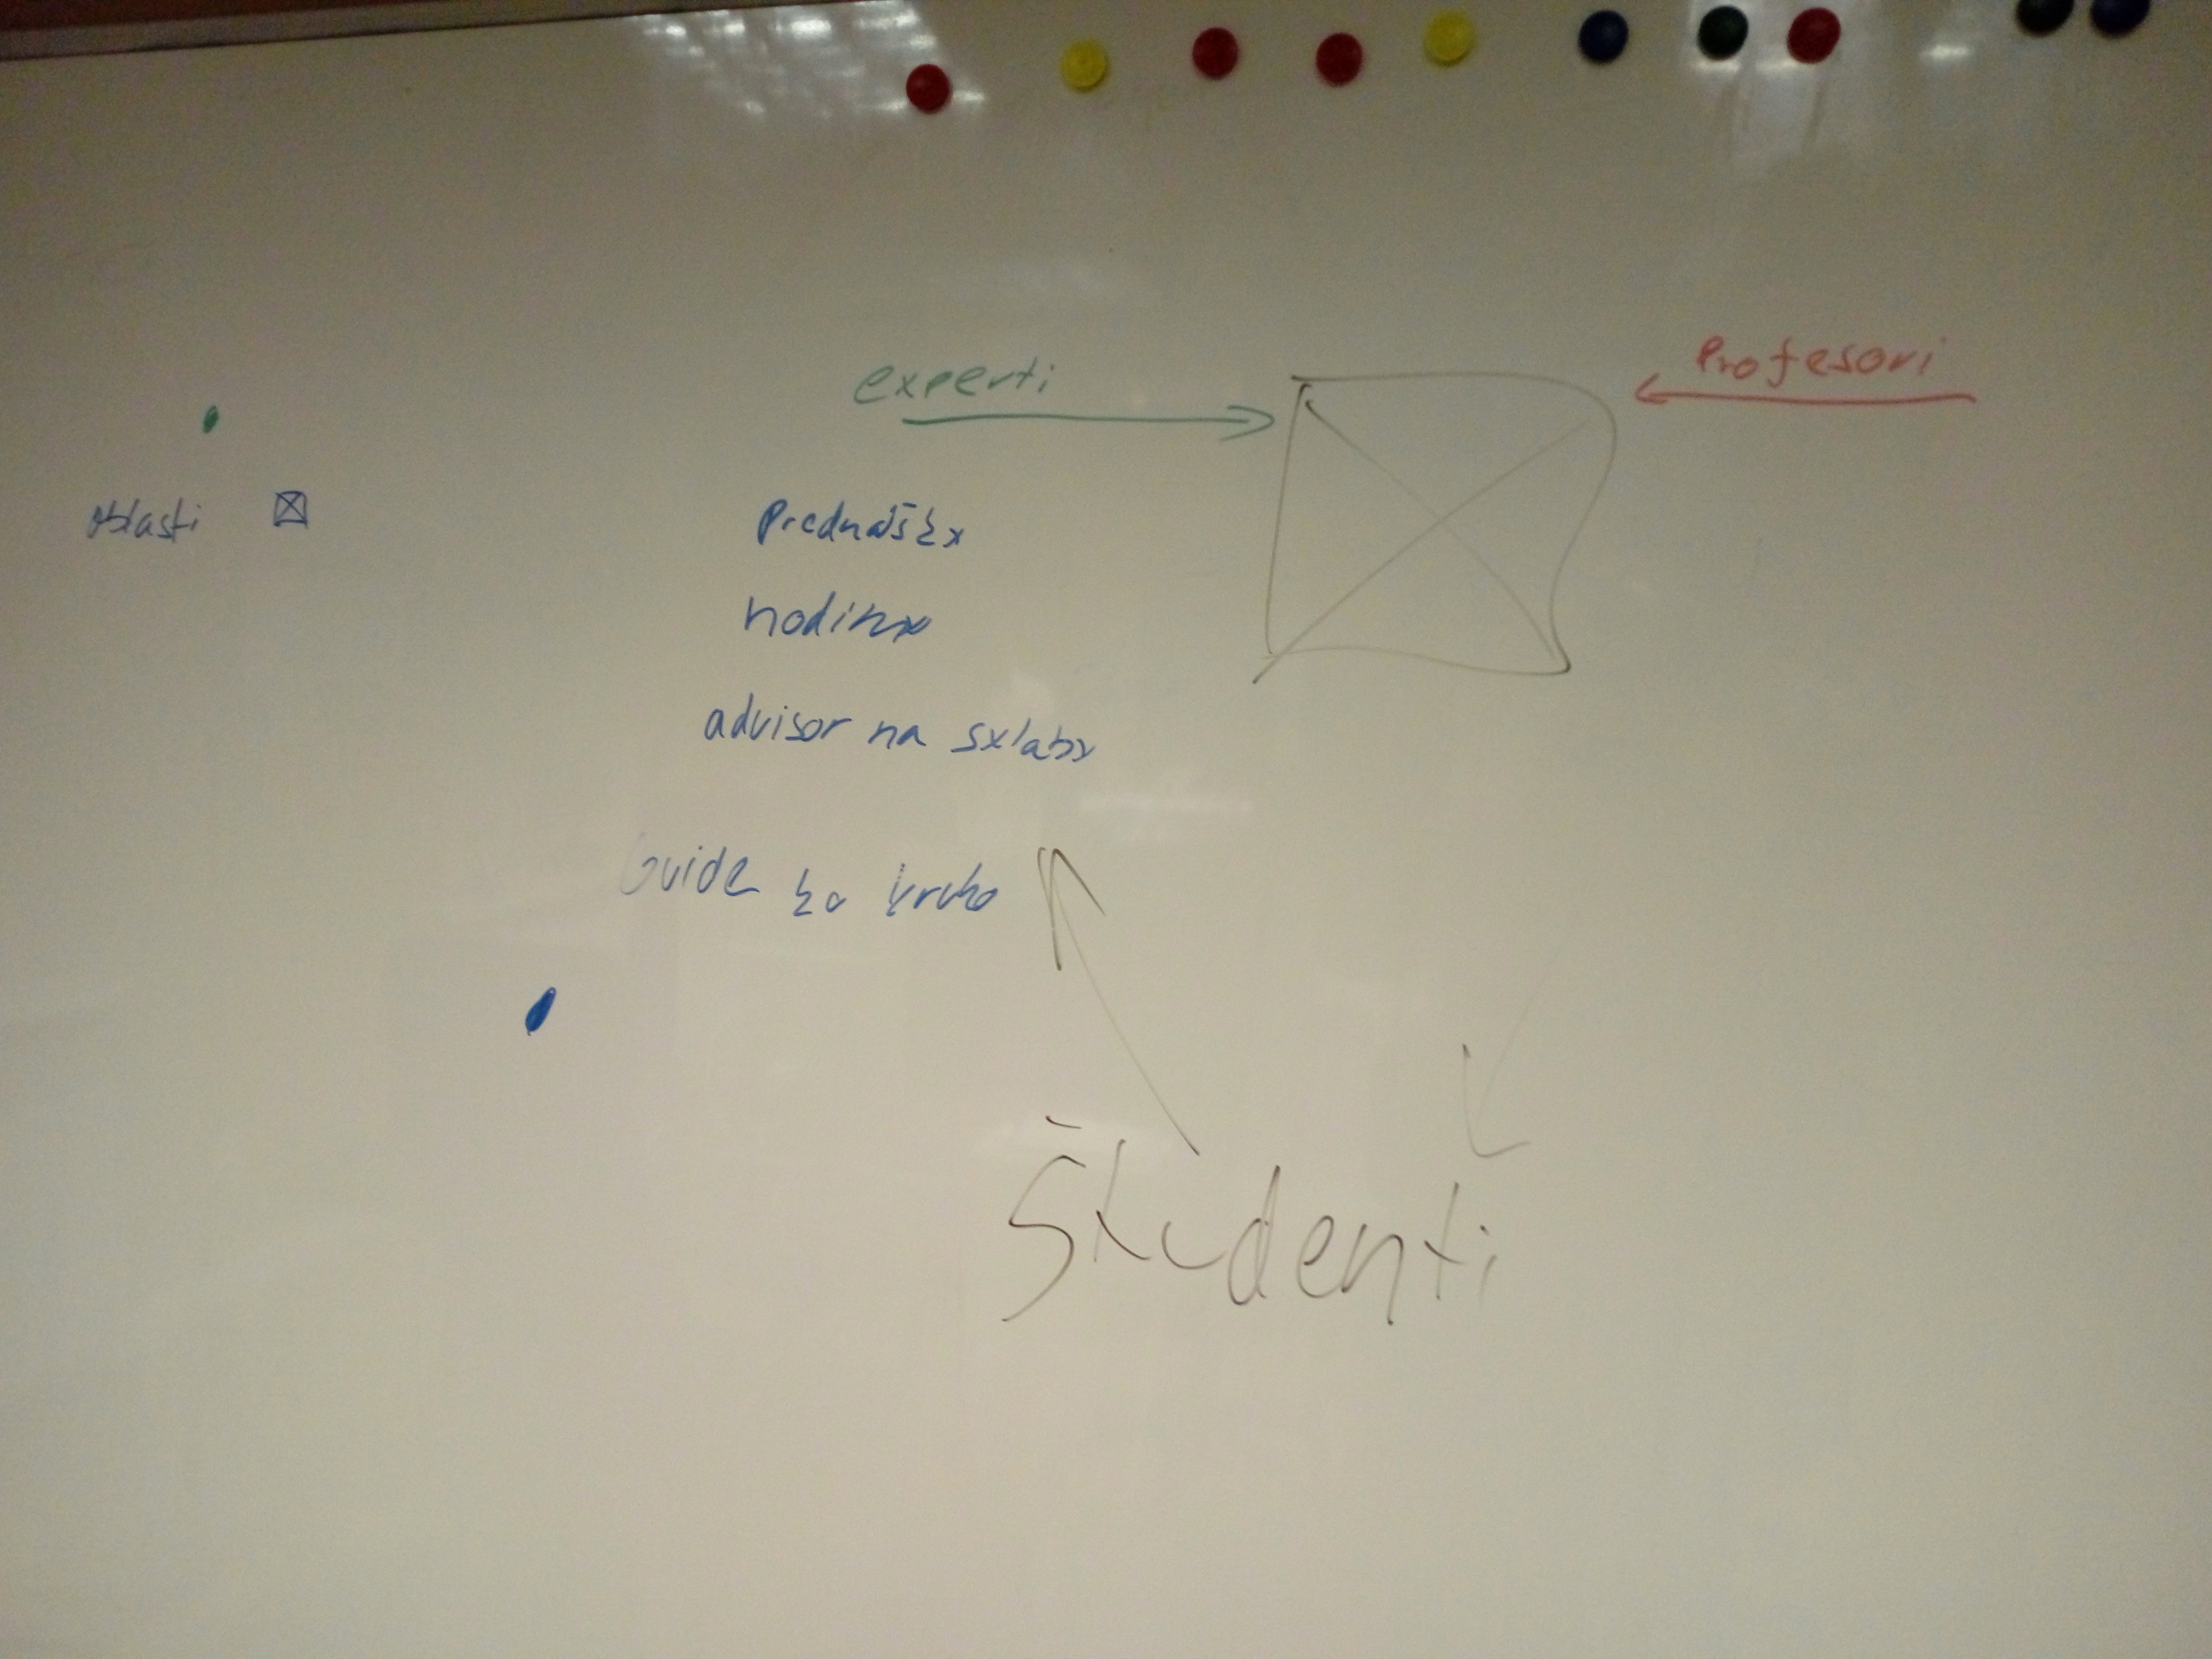 experti
Profesori
oblasti
Prednášky
hodiny
advisor na sylaby
Guide
Študenti